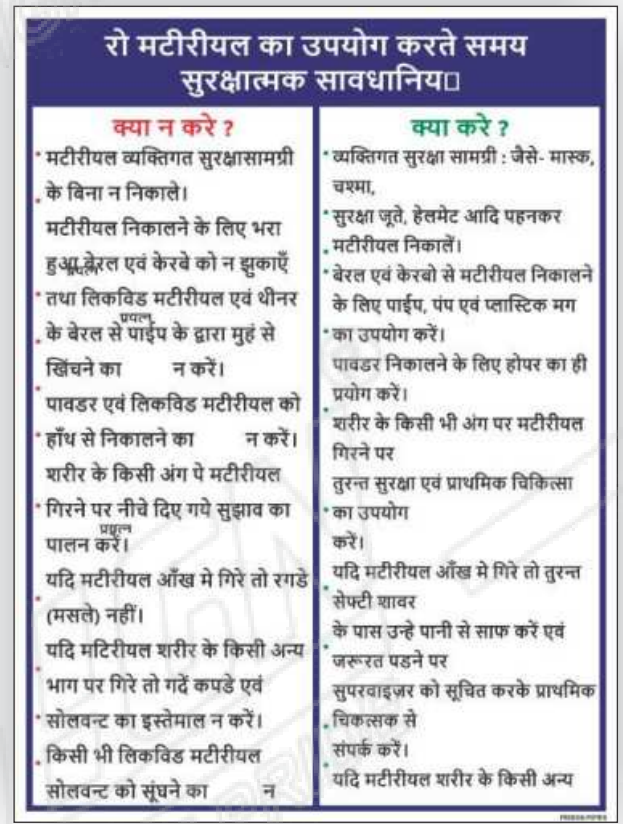 रो मटीरीयल का उपयोग करते समय
सुरक्षात्मक सावधानिय□
क्या न करे ?
मटीरीयल व्यक्तिगत सुरक्षासामग्री
के बिना न निकाले।
मटीरीयल निकालने के लिए भरा
हुआ बेरल एवं केरबे को न झुकाएँ
तथा लिकविड मटीरीयल एवं थीनर
प्रयत्न
के बेरल से पाईप के द्वारा मुहं से
खिंचने का न करें।
पावडर एवं लिकविड मटीरीयल को
हाँथ से निकालने का न करें।
शरीर के किसी अंग पे मटीरीयल
गिरने पर नीचे दिए गये सुझाव का
पालन करें।
यदि मटीरीयल आँख मे गिरे तो रगडे
(मसले) नहीं।
यदि मटिरीयल शरीर के किसी अन्य
भाग पर गिरे तो गदें कपडे एवं
सोलवन्ट का इस्तेमाल न करें।
किसी भी लिकविड मटीरीयल
सोलवन्ट को सूंघने का न
क्या करे ?
व्यक्तिगत सुरक्षा सामग्री : जैसे- मास्क,
चश्मा,
सुरक्षा जूते, हेलमेट आदि पहनकर
मटीरीयल निकालें।
बेरल एवं केरबो से मटीरीयल निकालने
के लिए पाईप, पंप एवं प्लास्टिक मग
का उपयोग करें।
पावडर निकालने के लिए होपर का ही
प्रयोग करें।
शरीर के किसी भी अंग पर मटीरीयल
गिरने पर
तुरन्त सुरक्षा एवं प्राथमिक चिकित्सा
का उपयोग
करें।
यदि मटीरीयल आँख मे गिरे तो तुरन्त
सेफ्टी शावर
के पास उन्हे पानी से साफ करें एवं
जरूरत पडने पर
सुपरवाइज़र को सूचित करके प्राथमिक
चिकत्सक से
संपर्क करें।
यदि मटीरीयल शरीर के किसी अन्य